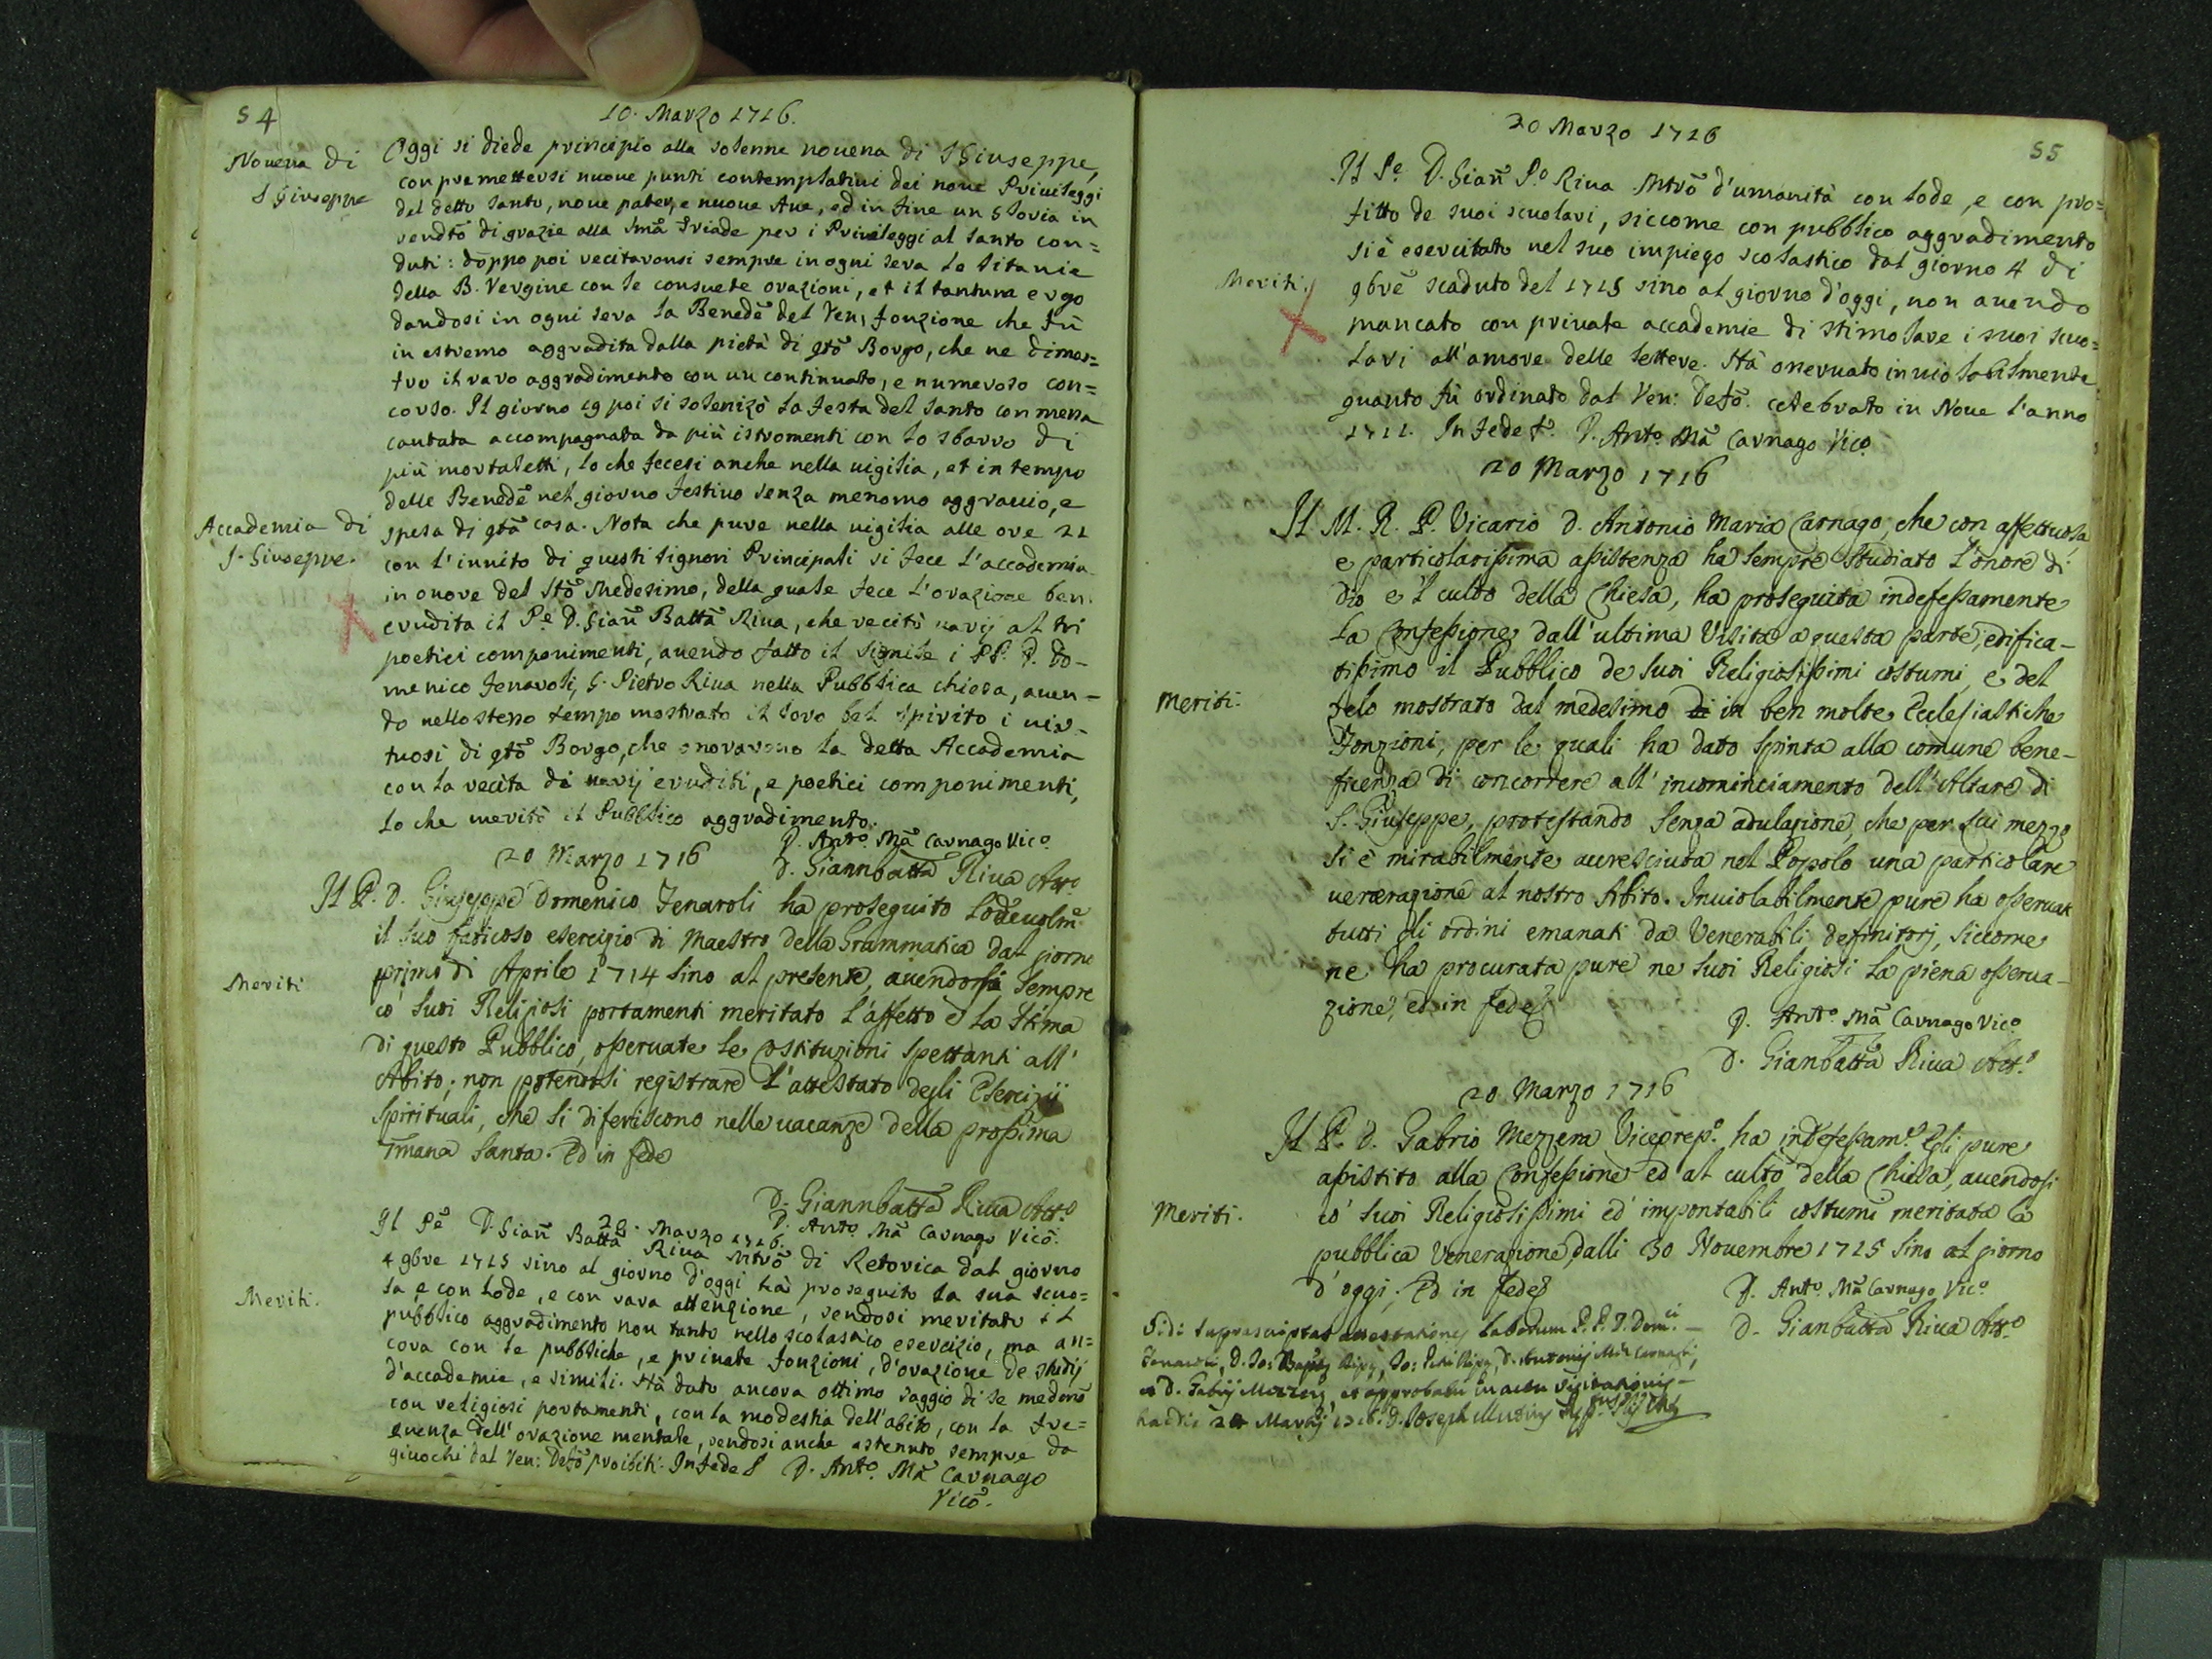 54
10. Marzo 1716.
Novena di
S Giuseppe
Oggi si diede principio alla solenne novena di S Giuseppe,
con premettersi nuove punti contemplativi dei nove Privileggi
del detto Santo, nove pater, e nuove Ave, ed in fine un Gloria in
rendto di grazie alla Smã Triade per i Privileggi al Santo con=
duti: doppo poi recitavonsi sempre in ogni sera le litanie
della B. Vergine con le consuete orazioni, et il tantum ergo
dandosi in ogni sera la Benedẽ del Ven, fonzione che fù
in estremo aggradita dalla pietà di qtõ Borgo, che ne dimos=
tro il raro aggradimento con un continuato, e numeroso con=
corso. Il giorno 19 poi si solenizò la festa del Santo con messa
cantata accompagnata da più istromenti con lo sbarro di
più mortaletti, lo che fecesi anche nella vigilia, et in tempo
delle Benedẽ nel giorno festivo senza menomo aggravio, e
Accademia di
S. Giuseppe.
spesa di qtã casa. Nota che pure nella vigilia alle ore 21
con l'invito di questi signori Principali si fece l'accademia
in onore del Stõ Medesimo, della quale fece l'orazione ben
erudita il Pẽ D. Giañ Battã Riva, che recitò varij altri
poetici componimenti, avendo fatto il simile i PP. D. Do-
menico Fenaroli, G. Pietro Riva nella Pubblica chiesa, aven-
do nello stesso tempo mostrato il loro bel spirito i vir-
tuosi di qtõ Borgo, che onorarono la detta Accademia
con la recita di varij eruditi, e poetici componimenti,
lo che meritò il Pubblico aggradimento.
D. Antº. Mã Carnago Vicº.
20 Marzo 1716
D. Giannbattã Riva Attº
Il P. D. Giuseppe Domenico Fenaroli ha proseguito lodevolmẽ
il suo faticoso esercizio di Maestro della Grammatica dal giorno
Meriti
primo di Aprile 1714 sino al presente, avendosi sempre
cò suoi Religiosi portamenti meritato l'affetto e la stima
di questo Pubblico, osservate le costituzioni spettanti all'
Abito; non potendosi registrare l'attestato degli Esercizij
Spirituali, che si differiscono nelle vacanze della prossima
7mana Santa. Ed in fede
D. Giannbattã Riva Attº
D. Antº. Mã Carnago Vicõ.
20. Marzo 1716.
Il Pẽ D. Giañ Battã Riva Mtrõ di Retorica dal giorno
4 9bre 1715 sino al giorno d'oggi hà proseguito la sua scuo=
Meriti.
la, e con lode, e con rara attenzione, rendosi meritato il
pubblico aggradimento non tanto nello scolastico esercizio, ma an=
cora con le pubbliche, e private fonzioni, d'orazione de studij
d'accademie, e simili. Hà dato ancora ottimo saggio di se medemõ
con religiosi portamenti, con la modestia dell'abito, con la fre=
quenza dell'orazione mentale, rendosi anche astenuto sempre da
giuochi dal Ven: Defõ proibiti. In fede D. Antº. Mã Carnago
Vicõ.
55
20 Marzo 1716
Il Pẽ. D. Giañ Pº Riva Mtrõ d'umanità con lode, e con pro=
fitto de suoi scuolari, siccome con pubblico aggradimento
si è esercitato nel suo impiego scolastico dal giorno 4 di
Meriti.
9brẽ scaduto del 1715 sino al giorno d'oggi, non avendo
mancato con private accademie di stimolare i suoi scuo=
lari all'amore delle lettere. Hà osservato inviolabilmente
quanto fù ordinato dal Ven: Defõ. celebrato in Nove l'anno
1711. In fede D. Antº. Mã Carnago Vicº.
20 Marzo 1716
Il M. R. P. Vicario D. Antonio Maria Carnago, che con affettuosa,
e particolarissima assistenza ha sempre studiato l'onore di
Dio e 'l culto della Chiesa, ha proseguita indefessamente
la Confessione dall'ultima Visita a questa parte, edifica-
tissimo il Pubblico de suoi Religiosissimi costumi, e del
Meriti.
zelo mostrato dal medesimo di in ben molte Ecclesiastiche
Fonzioni, per le quali ha dato spinta alla comune bene-
ficenza di concorrere all'incominciamento dell'Altare di
S. Giuseppe, protestando senza adulazione, che per sui mezzo
si è mirabilmente accresciuta nel Popolo una particolare
venerazione al nostro Abito. Inviolabilmente pure ha osservati
tutti gli ordini emanati da Venerabili Definitorj, siccome
ne ha procurata pure ne suoi Religiosi la piena osserva-
zione, ed in fede
D. Antº Mã Carnago Vicº.
D. Gianbattã Riva Attº.
20 Marzo 1716
Il P. D. Gabrio Mezzera Viceprepº. ha indefessamẽ Egli pure
assistito alla Confessione ed al culto della Chiesa, avendosi
Meriti.
cò suoi Religiosissimi ed impontabili costumi meritata la
pubblica venerazione, dalli 30 Novembre 1715 sino al giorno
d'oggi; Ed in fede
D. Antº. Mã Carnago Vicº.
D. Gianbattã Riva Attº
Vidi suprascriptas attestationes laborum P. P. D. Domci
D. Jo: Bapte Ripe, Jo: Petri Ripe, D. Antonij Me Carnagi,
et D. Gabrij Mezzere, et approbavi in actu visitationis
hac die 24 Martij 1716. D. Joseph